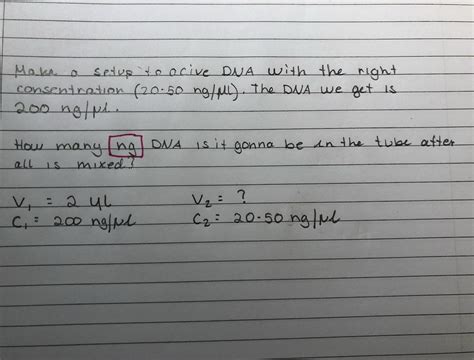 Make a setup to acive DNA with the right
consentration (20-50 ng/µl). The DNA we get is
200 ng/µl.
How many ng DNA is it gonna be in the tube after
all is mixed?
V₁ = 2 µl V₂ = ?
C₁ = 200 ng/µl C₂ = 20-50 ng/µl